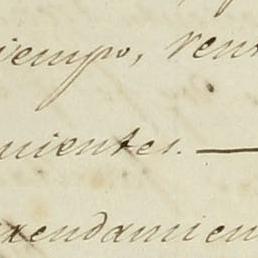 iempo, vent
nientes. —
xendamien